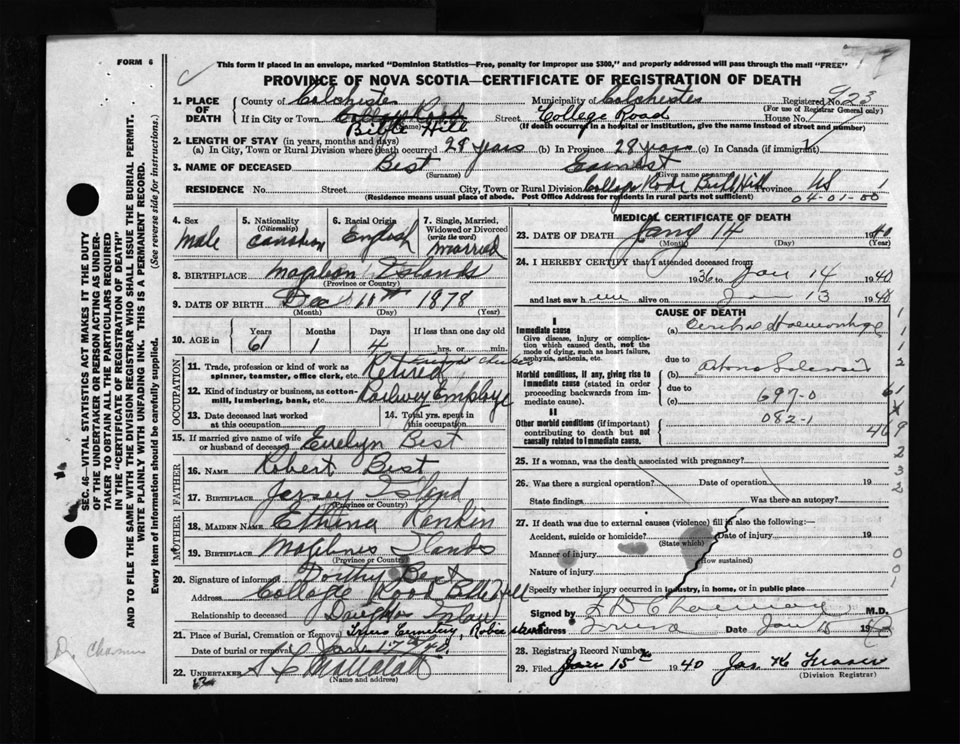 FORM 6
This form if placed in an envelope, marked "Dominion Statistics—Free, penalty for improper use $300," and properly addressed will pass through the mail "FREE"
PROVINCE OF NOVA SCOTIA—CERTIFICATE OF REGISTRATION OF DEATH
1. PLACE OF DEATH
County of Colchester Municipality of Colchester Registered No. 923
(For use of Registrar General only)
If in City or Town Bible Hill Street College Road House No.
(If death occurred in a hospital or institution, give the name instead of street and number)
2. LENGTH OF STAY (in years, months and days)
(a) In City, Town or Rural Division where death occurred 28 years (b) In Province 28 years (c) In Canada (if immigrant)
3. NAME OF DECEASED Best
(Surname) (Given name or names)
RESIDENCE No. Street City, Town or Rural Division College Rode Bible Hill Province NS
(Residence means usual place of abode. Post Office Address for residents in rural parts not sufficient)
04-01-00
4. Sex
male
5. Nationality
(Citizenship)
Canadian
6. Racial Origin
English
7. Single, Married, Widowed or Divorced
(write the word)
married
8. BIRTHPLACE Islands
(Province or Country)
9. DATE OF BIRTH Dec 10th 1878
(Month) (Day) (Year)
10. AGE in
Years 61
Months 1
Days 4
If less than one day old
hrs. or min.
OCCUPATION
11. Trade, profession or kind of work as spinner, teamster, office clerk, etc. Retired
12. Kind of industry or business, as cotton-mill, lumbering, bank, etc. Railway Employe
13. Date deceased last worked at this occupation
14. Total yrs. spent in this occupation
15. If married give name of wife or husband of deceased Evelyn Best
FATHER
16. NAME Robert Best
17. BIRTHPLACE Jersey Island
(Province or Country)
MOTHER
18. MAIDEN NAME Rankin
19. BIRTHPLACE Islands
(Province or Country)
20. Signature of informant Best
Address College Road Bible Hill
Relationship to deceased Daughter Inlaw
21. Place of Burial, Cremation or Removal Cemetery, Robie street
Date of burial or removal Jan 17th 40.
22. UNDERTAKER
(Name and address)
MEDICAL CERTIFICATE OF DEATH
23. DATE OF DEATH Jany 14 1940
(Month) (Day) (Year)
24. I HEREBY CERTIFY that I attended deceased from
1936 to Jan 14 1940
and last saw him alive on Jan 13 1940
CAUSE OF DEATH
I
Immediate cause
Give disease, injury or complication which caused death, not the mode of dying, such as heart failure, asphyxia, asthenia, etc.
(a) Cerebral Haemorrhage
due to
Morbid conditions, if any, giving rise to immediate cause (stated in order proceeding backwards from immediate cause).
(b)
due to
(c) 697-0
II
Other morbid conditions (if important) contributing to death but not causally related to immediate cause.
082-1
25. If a woman, was the death associated with pregnancy?
26. Was there a surgical operation? Date of operation 19
State findings Was there an autopsy?
27. If death was due to external causes (violence) fill in also the following:—
Accident, suicide or homicide? Date of injury 19
(State which)
Manner of injury
(How sustained)
Nature of injury
Specify whether injury occurred in industry, in home, or in public place
Signed by M.D.
Address Truro Date Jan 15 19
28. Registrar's Record Number
29. Filed Jan 15th 1940 Jas
(Division Registrar)
SEC. 46—VITAL STATISTICS ACT MAKES IT THE DUTY
OF THE UNDERTAKER OR PERSON ACTING AS UNDER-
TAKER TO OBTAIN ALL THE PARTICULARS REQUIRED
IN THE "CERTIFICATE OF REGISTRATION OF DEATH"
AND TO FILE THE SAME WITH THE DIVISION REGISTRAR WHO SHALL ISSUE THE BURIAL PERMIT.
WRITE PLAINLY WITH UNFADING INK. THIS IS A PERMANENT RECORD.
Every item of Information should be carefully supplied. (See reverse side for instructions.)